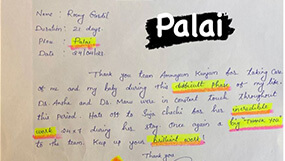 Name : Remy Gastil
Palai
Duration : 21 days
Place : Palai
Date : 24/
Thank you team Annapurn Kunjum for taking care
of me and my baby during this difficult phase of my life.
Dr. Asha and Dr. Manu were in constant touch throughout
this period. Hats off to Suja chechi for her incredible
work during her stay. Once again a big "THANK YOU"
to the team. Keep up your brilliant work!
Thank you